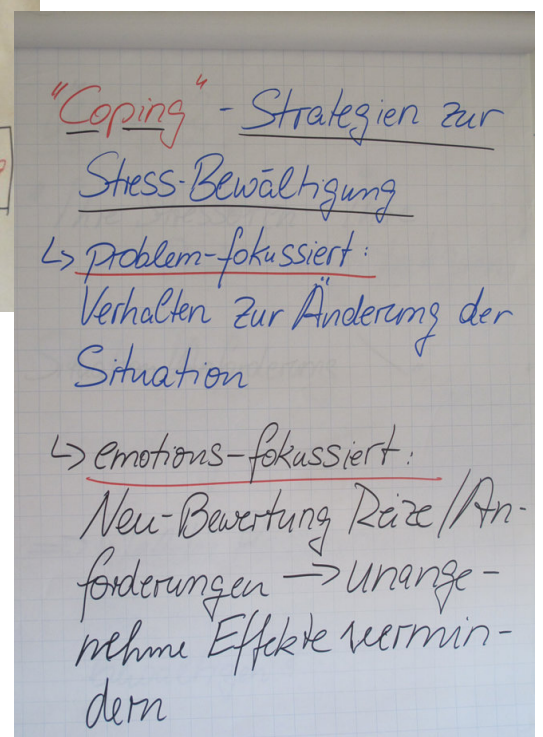 "Coping" - Strategien zur
Stress-Bewältigung
↳ problem-fokussiert:
Verhalten zur Änderung der
Situation
↳ emotions-fokussiert:
Neu-Bewertung Reize/An-
forderungen → unange-
nehme Effekte vermin-
dern